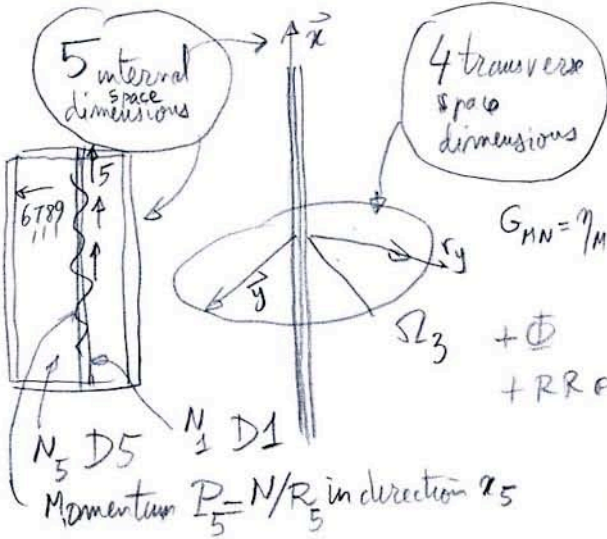 5 internal
space
dimensions
x⃗
4 transverse
space
dimensions
5
6789
G_MN = η_M
y⃗
r_y
Ω_3
+ Φ
+ RR
N_5 D5
N_1 D1
Momentum P_5 = N/R_5 in direction x_5